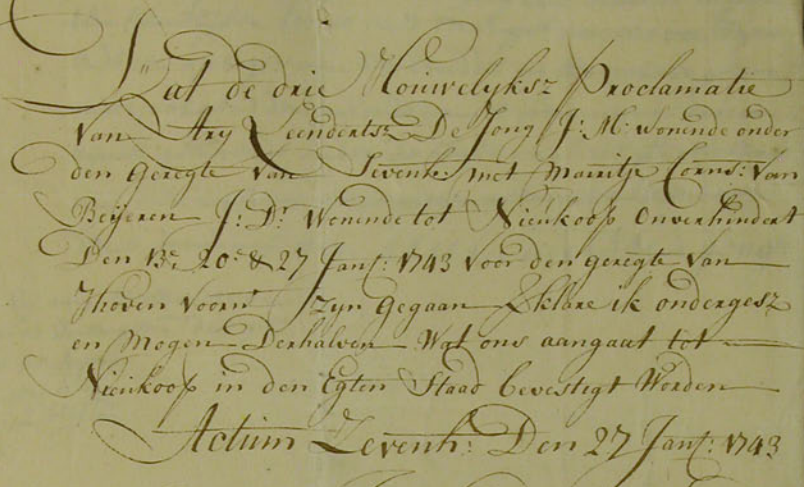 Dat de drie Houwelyksz Proclamatie
van Ary Leendertsz De Jong J: M: wonende onder
den Geregte van Sevenh: met Marritje Corns: van
Beijeren J: Dr wonende tot Nieukoop onverhindert
Den 13e 20e & 27 Janſ: 1743 voor den geregte van
Zyn Gegaan verklare ik ondergesz
en Mogen Derhalven Wat ons aangaat tot
Nieukoop in den Egten Staad bevestigt Worden
Actum Zevenh: Den 27 Janſ: 1743